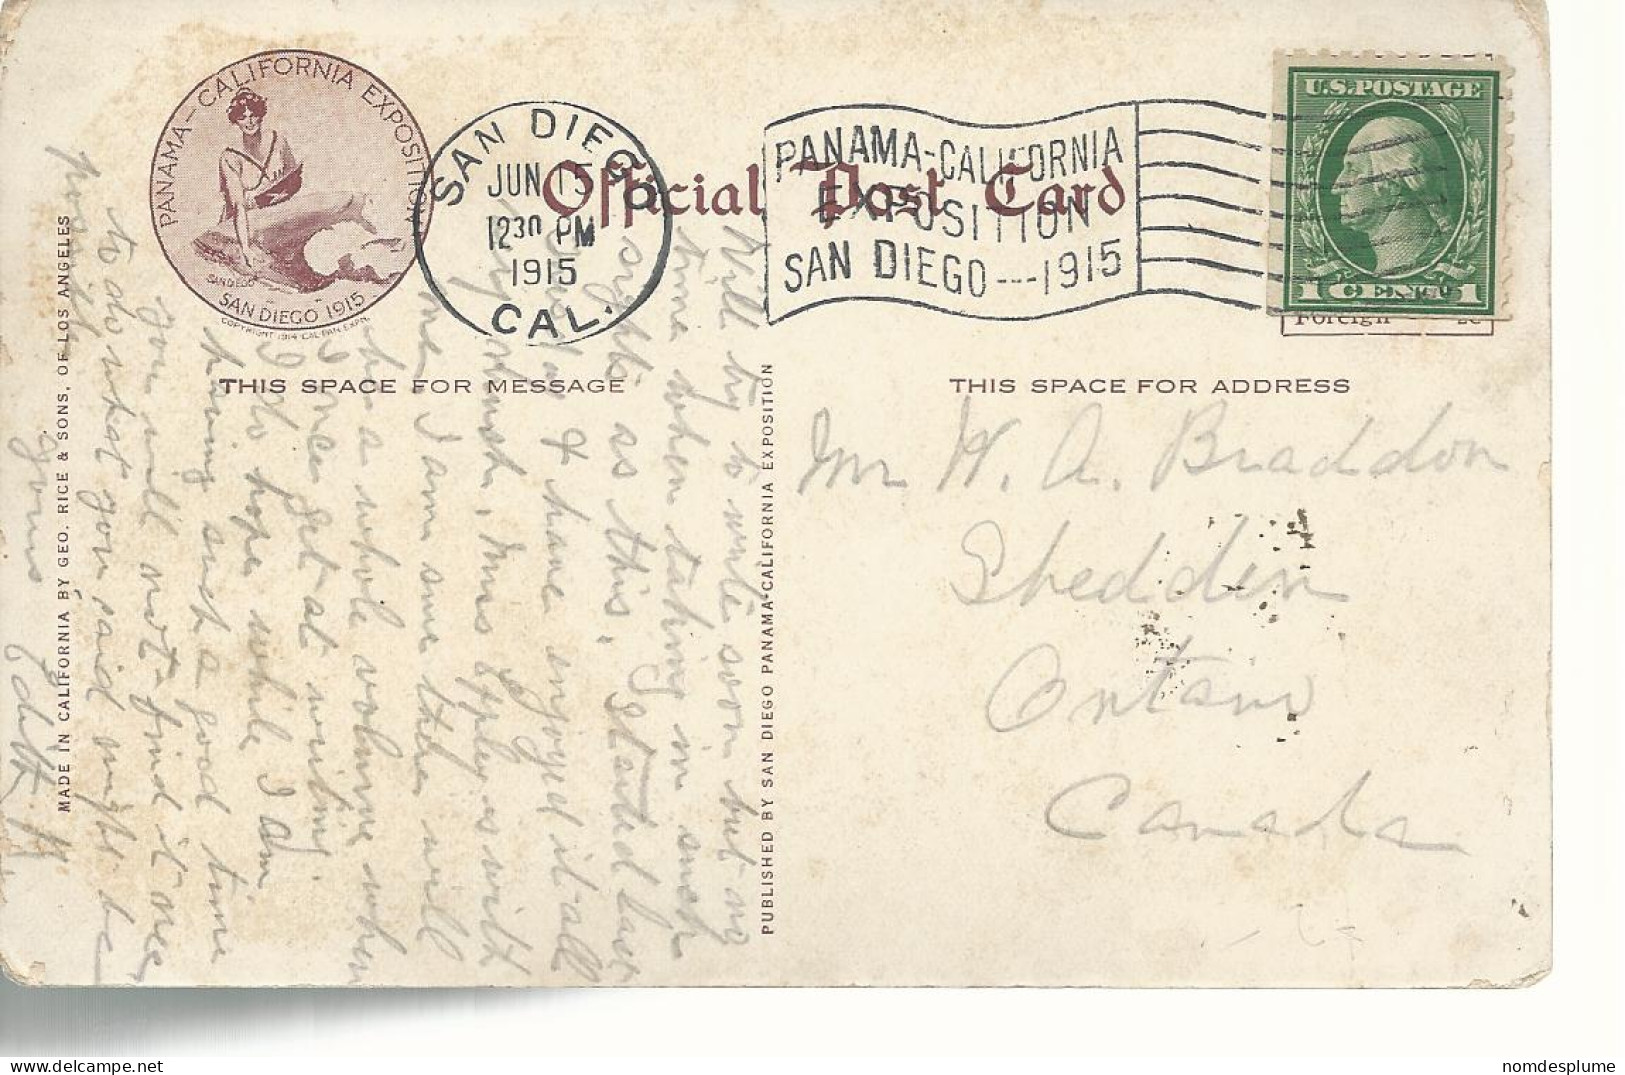 PANAMA-CALIFORNIA EXPOSITION
SAN DIEGO
SAN DIEGO 1915
COPYRIGHT 1914 CAL-PAN-EXPN
SAN DIEGO
JUN 15
1230 PM
1915
CAL.
Official Post Card
PANAMA-CALIFORNIA
EXPOSITION
SAN DIEGO---1915
U.S. POSTAGE
1 CENT 1
Foreign 2c
THIS SPACE FOR MESSAGE
THIS SPACE FOR ADDRESS
MADE IN CALIFORNIA BY GEO. RICE & SONS, OF LOS ANGELES
PUBLISHED BY SAN DIEGO PANAMA-CALIFORNIA EXPOSITION
Will try to write soon but my
time when taking in such
sights as this. Started last
& have enjoyed it all
very much. Mrs Epley is with
me. I am sure this will
be a whole volume when
I once get at writing.
I do hope while I am
having such a good time
you will not find it nec
to do what you said might be
possible.
Yours
Edith
Mr W. A. Braddon
Shedden
Ontario
Canada
nomdesplume